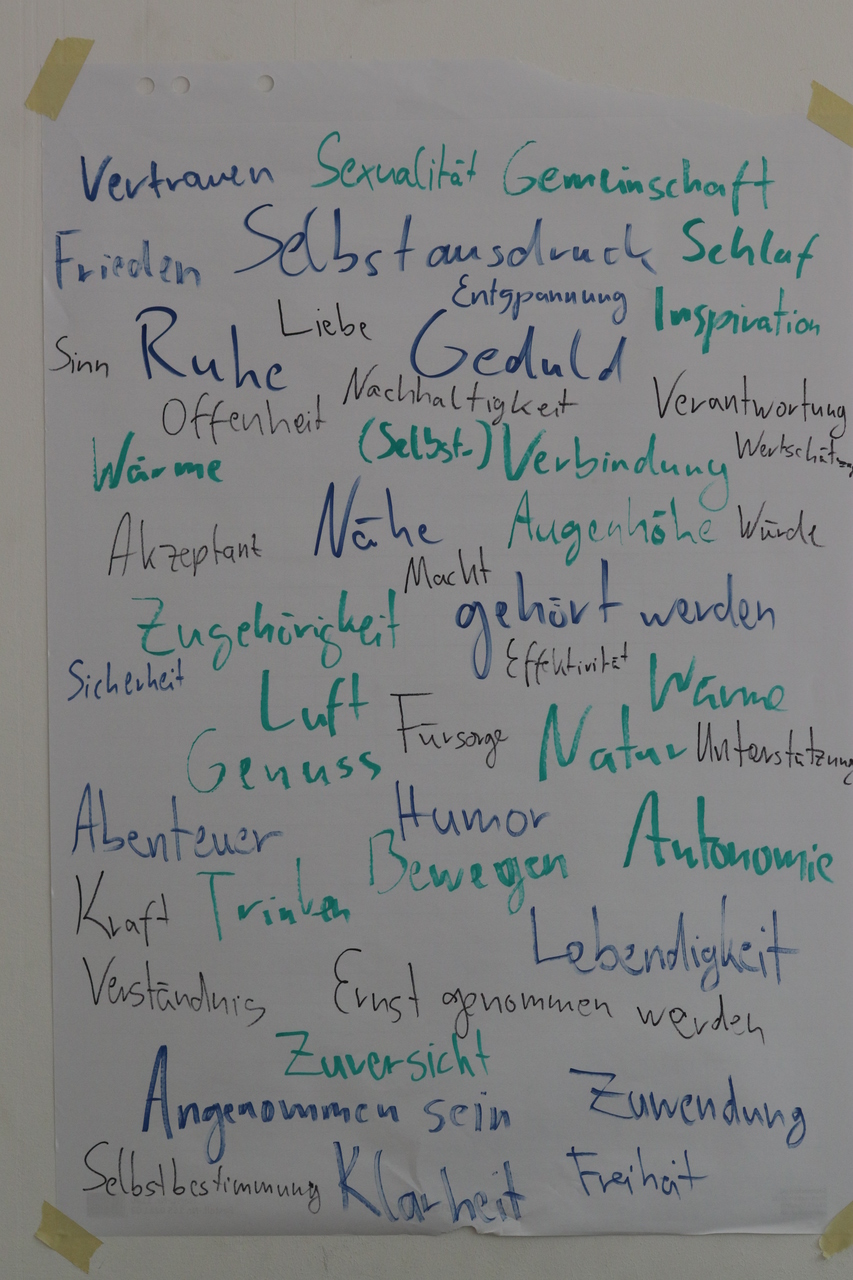 Vertrauen Sexualität Gemeinschaft
Frieden Selbstausdruck Schlaf
Entspannung Inspiration
Sinn Ruhe Liebe Geduld
Offenheit Nachhaltigkeit Verantwortung
Wärme (Selbst-) Verbindung Wertschätzung
Akzeptant Nähe Augenhöhe Würde
Macht
Zugehörigkeit gehört werden
Sicherheit Effektivität
Luft Fürsorge Wärme
Genuss Natur Unterstützung
Abenteuer Humor Autonomie
Kraft Trinken Bewegen
Lebendigkeit
Verständnis Ernst genommen werden
Zuversicht
Angenommen sein Zuwendung
Selbstbestimmung Klarheit Freiheit